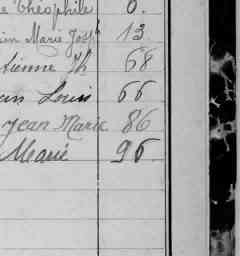 e Théophile 0.
in Marie Josph 13
tienne Th 68
an Louis 66
Jean Marie 86
Marie 96